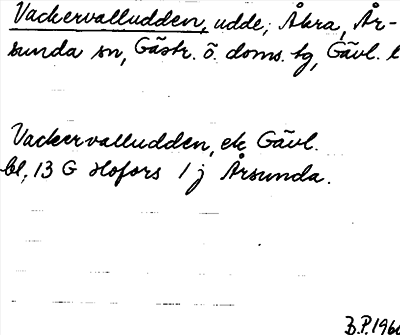 Vackervalludden, udde, Åkra, År-
sunda sn, Gästr. ö. doms. tg, Gävl. l
Vackervalludden, ek Gävl.
bl, 13 G Hofors 1 j Årsunda.
B.P. 1960